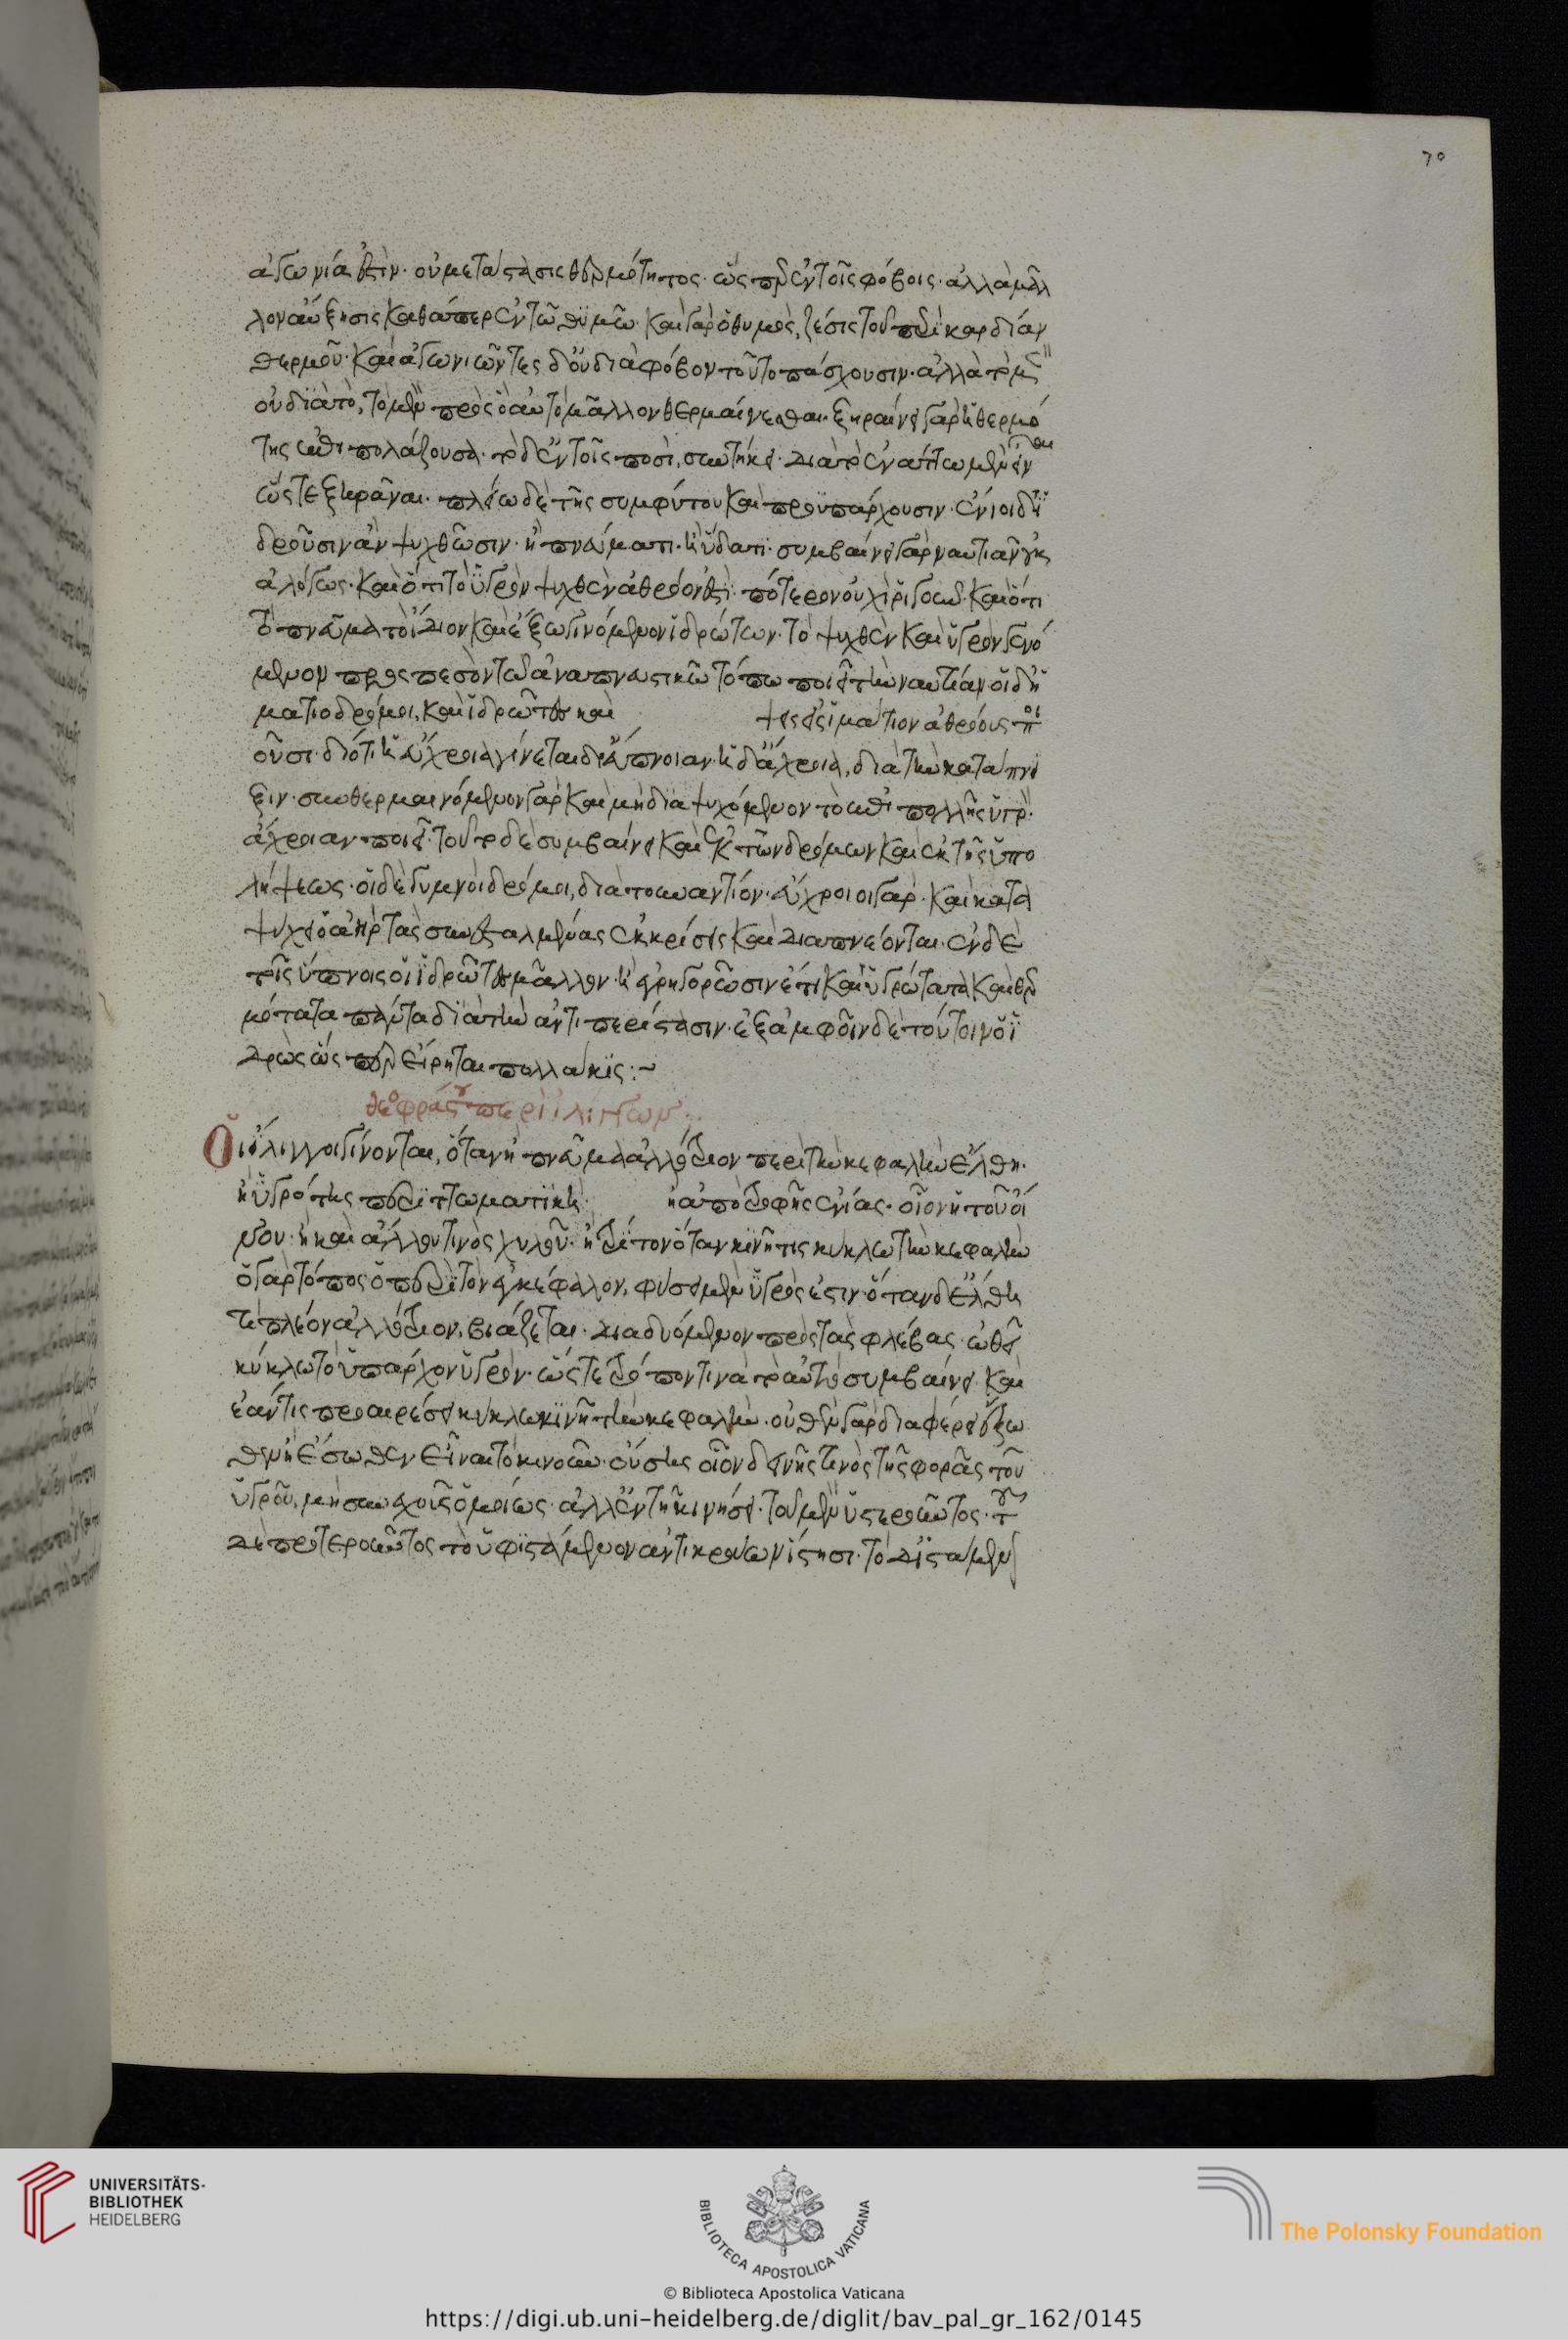 70
ἀγωνία ἐστὶν· οὐ μετάστασις θερμότητος· ὥσπερ ἐν τοῖς φόβοις· ἀλλὰ μᾶλ
λον αὔξησις καθάπερ ἐν τῶ θυμῶ· καὶ γὰρ ὁ θυμὸς, ζέσις τοῦ περὶ καρδίαν
θερμοῦ· καὶ ἀγωνιῶντες δ' οὐ διὰ φόβον τοῦτο πάσχουσιν· ἀλλὰ
οὐ διατὸ, τὸ μὲν πρὸς ὃ αὐτὸ μᾶλλον θερμαίνεσθαι· ξηραίνει γὰρ ἡ θερμό
της ἐπιπολάζουσα· τὸ δ' ἐν τοῖς ποσὶ, συντήκει· διὰ τὸ ἐν
ὥστε ξηρᾶναι· πλείω δὲ τῆς συμφύτου καὶ προϋπάρχουσιν· ἔνιοι δ' ἱ
δροῦσιν ἂν ψυχθῶσιν· ἢ πνεύματι· ἢ ὕδατι· συμβαίνει γὰρ ναυτιᾶν
ἀλόγως· καὶ ὅτι τὸ ὑγρὸν ψυχθὲν ἀθρόον ἐστὶ· πότερον οὐ χὶ ῥιγοσ καὶ ὅτι
τὸ πνεῦμα τὸ ἴδιον καὶ ἔξω γινόμενον ἱδρώτων· τὸ ψυχθὲν καὶ ὑγρὸν γενό
μενον προσπεσὸν τῶ ἀναπνευστικῶ τόπω ποιεῖ τὴν ναυτίαν οἱ δ' ἱ
ματιοδρόμοι, καὶ ἱδρῶτες καὶ ψεσ εἱμάτιον ἀθρόους ποι
οῦσι· διότι ἡ εὔχροια γίνεται δι' εὔπνοιαν· ἡ δ' ἄχροια, διὰ τὴν κατάπνι
ξιν· συνθερμαινόμενον γὰρ καὶ μὴ διαψυχόμενον τὸ ἐπιπολῆς ὑγρὸ.
ἄχροιαν ποιεῖ· τοῦτο δὲ συμβαίνει καὶ ἐκ τῶν δρόμων καὶ ἐκ τῆς ὑπο
λήψεως· οἱ δὲ γυμνοὶ δρόμοι, διὰ τοὐναντίον· εὔχροιοι γὰρ· καὶ κατα
ψύχει ὁ ἀὴρ τὰς συνισταμένας ἐκκρίσεις καὶ διαπνέονται· ἐν δὲ
τοῖς ὕπνοις οἱ ἱδρῶτες μᾶλλον· ἢ ἐγρηγορῶσιν ἔτι καὶ ὑγρώτατα καὶ θερ
μότατα πάντα διὰ τὴν ἀντιπερίστασιν· ἐξ ἀμφοῖν δὲ τούτοιν ὁ ἱ
δρὼς ὥσπερ εἴρηται πολλάκις:~
θεοφράστου περὶ ἰλίγγων:
Οἱ ἴλιγγοι γίνονται, ὅταν ἢ πνεῦμα ἀλλότριον περὶ τὴν κεφαλὴν ἔλθη·
ἢ ὑγρότης περιττωματικὴ· ἢ ἀπὸ τροφῆς ἐνίας· οἷον ἢ τοῦ οἴ
νου· ἢ καὶ ἄλλου τινὸς χυλοῦ· ἢ τρίτον ὅταν κινῆ τις κύκλω τὴν κεφαλὴν
ὁ γὰρ τόπος ὁ περὶ τὸν ἐγκέφαλον, φύσει μὲν ὑγρός ἐστιν· ὅταν δ' ἔλθη
τι πλέον ἀλλότριον, βιάζεται· διαδυόμενον πρὸς τὰς φλέβας· ὠθεῖ
κύκλω τὸ ὑπάρχον ὑγρὸν· ὥστε τρόπον τινὰ τὸ αὐτὸ συμβαίνει καὶ
ἐάν τις προαιρέσει κύκλω κινῆ τὴν κεφαλὴν· οὐθὲν γὰρ διαφέρει ἔξω
θεν ἢ ἔσωθεν εἶναι τὸ κινοῦν· οὔσης οἷον δεινῆς τινὸς τῆς φορᾶς τοῦ
ὑγροῦ, μὴ συνεχοῦς ὁμοίως· ἀλλ' ἐν τῆ κινήσει· τοῦ μὲν ὑστεροῦντος· τοῦ
δὲ προτεροῦντος τὸ ὑφιστάμενον ἀντικροῦον ἵστησι· τὸ διϊστάμεν
UNIVERSITÄTS-
BIBLIOTHEK
HEIDELBERG
BIBLIOTECA APOSTOLICA VATICANA
The Polonsky Foundation
© Biblioteca Apostolica Vaticana
https://digi.ub.uni-heidelberg.de/diglit/bav_pal_gr_162/0145